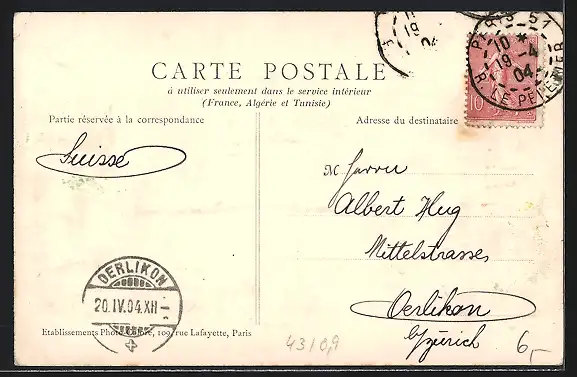 CARTE POSTALE
à utiliser seulement dans le service intérieur
(France, Algérie et Tunisie)
Partie réservée à la correspondance
Adresse du destinataire
Suisse
Herrn
Albert Hug
Mittelstrasse
Oerlikon
b/Zürich
PARIS 57
10 *
19 -4
04
R. LE PELETIER
19
04
10
OERLIKON
20.IV.04.XII
Etablissements Photo- 109, rue Lafayette, Paris
4310,9
6,-